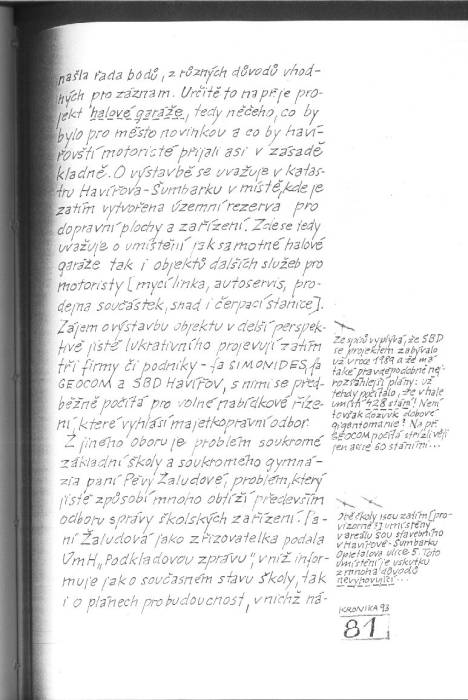 našla řada bodů, z různých důvodů vhod-
ných pro záznam. Určitě to např. je pro-
jekt halové garáže, tedy něčeho, co by
bylo pro město novinkou a co by haví-
řovští motoristé přijali asi v zásadě
kladně. O výstavbě se uvažuje v katas-
tru Havířova-Šumbarku v místě, kde je
zatím vytvořena územní rezerva pro
dopravní plochy a zařízení. Zde se tedy
uvažuje o umístění jak samotné halové
garáže tak i objektů dalších služeb pro
motoristy [mycí linka, autoservis, pro-
dejna součástek, snad i čerpací stanice].
Zájem o výstavbu objektu v delší perspek-
tivě jistě lukrativního projevují zatím
tři firmy či podniky - fa SIMONIDES, fa
GEOCOM a SBD HAVÍŘOV, s nimi se před-
běžně počítá pro volné nabídkové říze-
ní, které vyhlásí majetkoprávní odbor.
Z jiného oboru je problém soukromé
základní školy a soukromého gymná-
zia paní Pévy Žaludové, problém, který
jistě způsobí mnoho obtíží především
odboru správy školských zařízení. Pa-
ní Žaludová jako zřizovatelka podala
ÚmH „Podkladovou zprávu", v níž infor-
muje jak o současném stavu školy, tak
i o plánech pro budoucnost, v nichž ná-
Ze spisů vyplývá, že SBD
se projektem zabývalo
už v roce 1989 a že má
také pravděpodobně nej-
rozsáhlejší plány: už
tehdy počítalo, že v hale
umístí 428 stání! Není
to však dozvuk dobové
gigantománie? Na př.
GEOCOM počítá střízlivěji
jen asi se 60 stáními...
Obě školy jsou zatím [pro-
vizorně?] umístěny
v areálu SOU stavebního
v Havířově-Šumbarku
Opletalova ulice 5. Toto
umístění je vskutku
z mnoha důvodů
nevyhovující...
KRONIKA 93
81